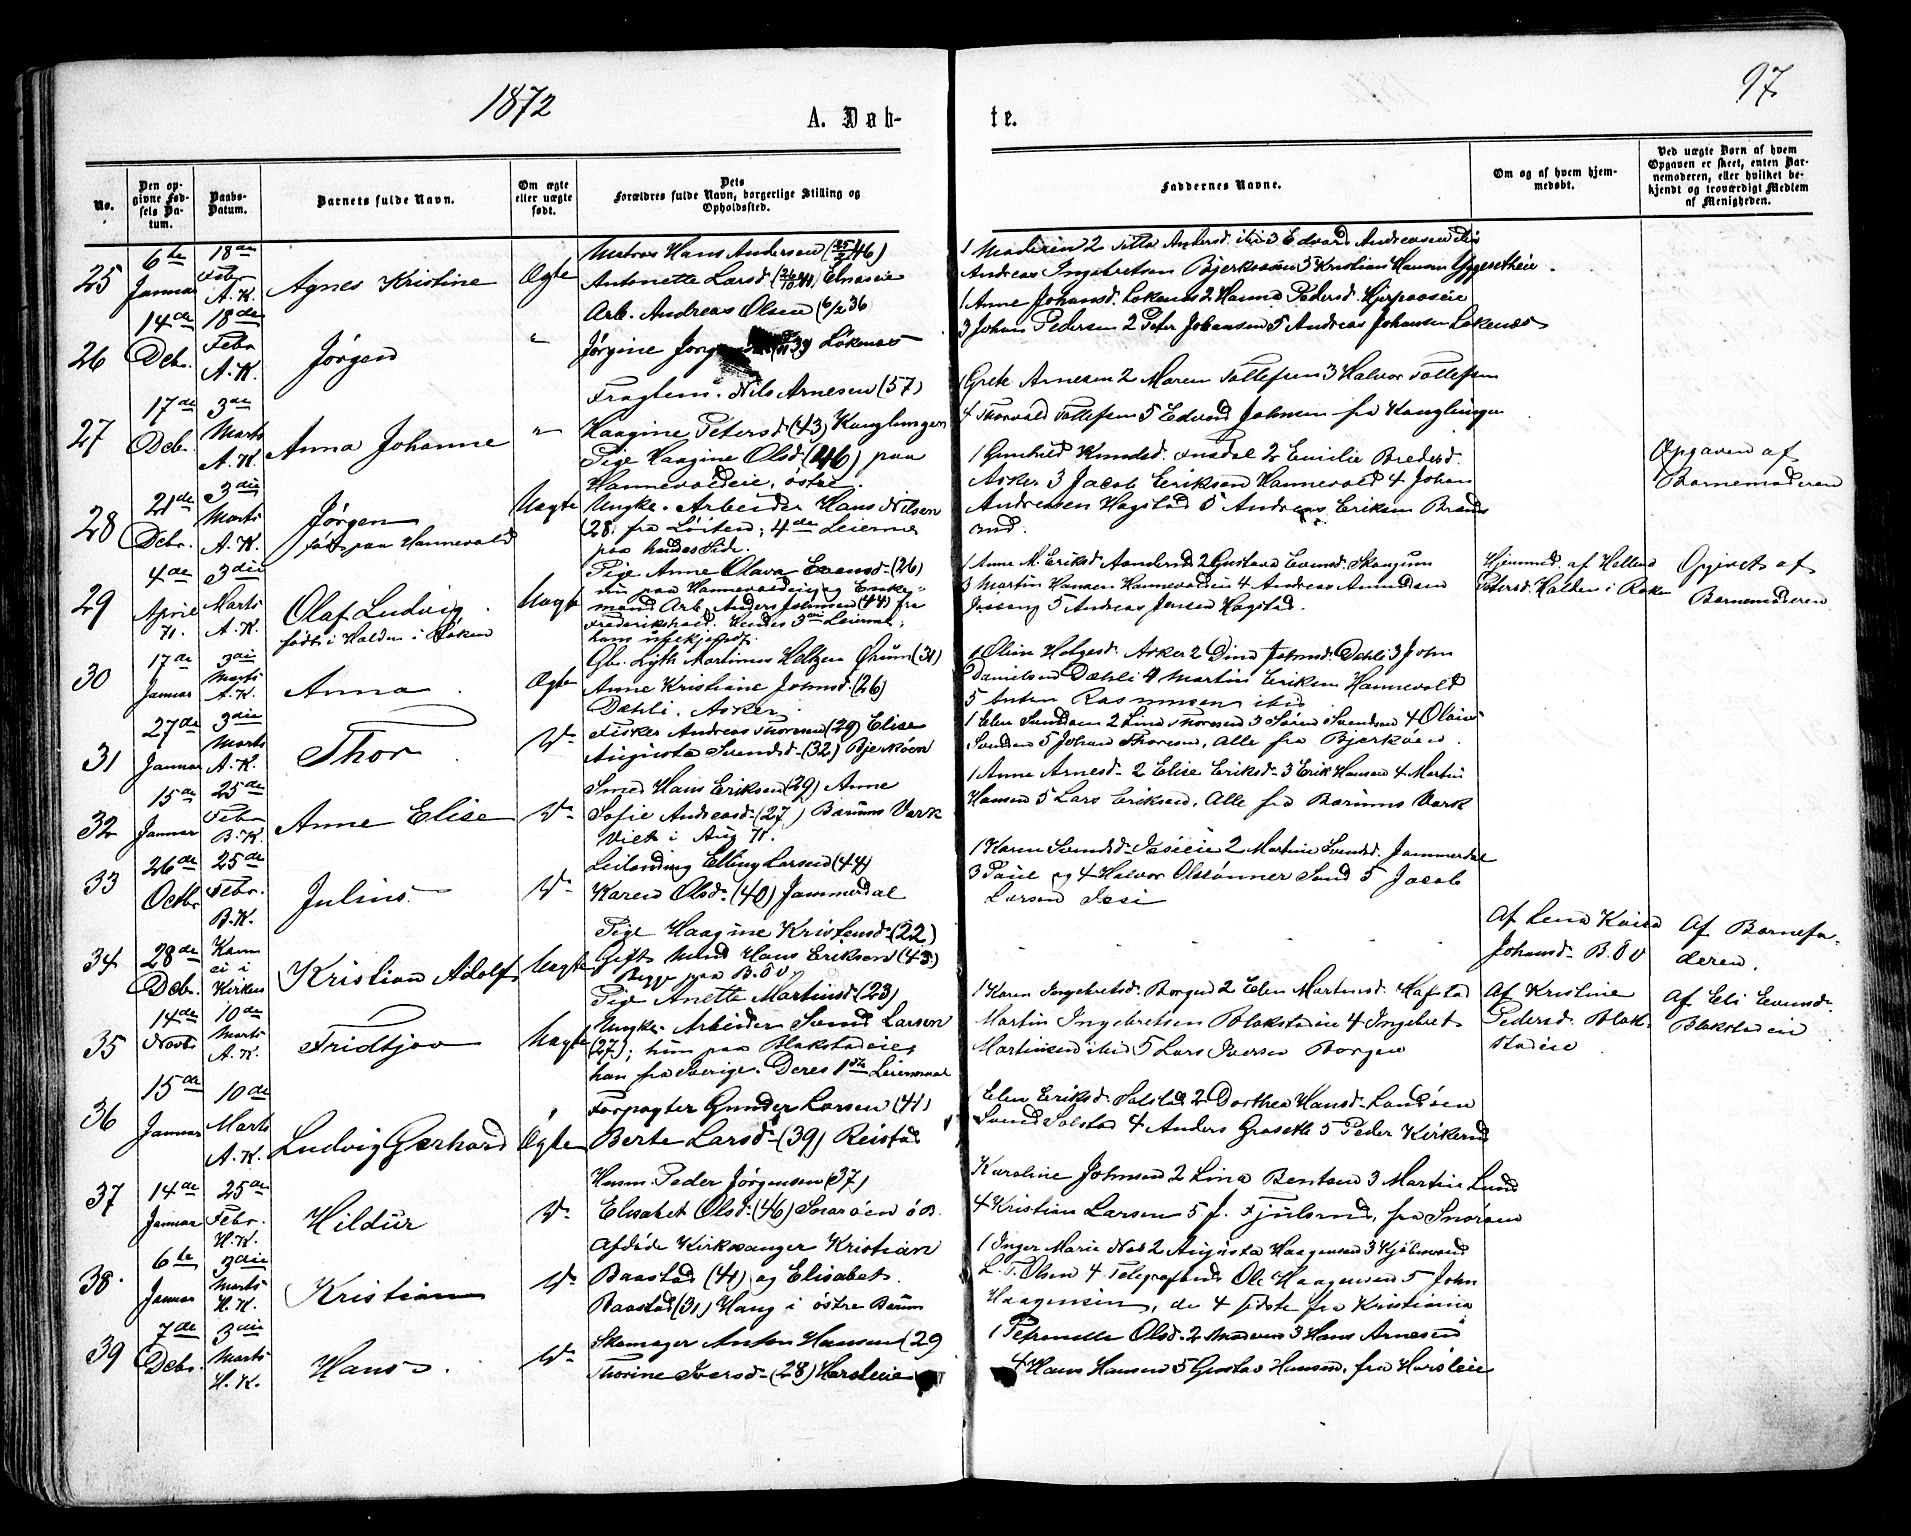 1872
97
A. Døb-
te.
No.
Den op-
givne Fød-
sels Da-
tum.
Daabs-
Datum.
Barnets fulde Navn.
Om ægte
eller uægte
født.
Dets
Forældres fulde Navn, borgerlige Stilling og
Opholdssted.
Faddernes Navne.
Om og af hvem hjem-
medøbt.
Ved uægte Børn af hvem
Opgaven er skeet, enten Bar-
nemoderen, eller hvilket be-
kjendt og troværdigt Medlem
af Menigheden.
25
6te
Januar
18de
Febr
A. K.
Agnes Kristine
Ægte
Matros Hans Andersen (46)
Antonette Larsd. Elnæseie
1 Moderen 2 Andersd. ibi 3 Edvard Andreasen ibi
Andreas Ingebretsen Bjerkaasen 5 Kristian Hansen
26
14de
Debr.
18de
Febr
A. K.
Jørgen
"
Arb. Andreas Olsen (6/2 36
Jørgine Løkenes
1 Anne Johansd. Løkenes 2 Hanna Pedersd.
3 Johan Pedersen 2 Peter Johansen 5 Andreas Johansen Løkenes
27
17de
Debr.
3die
Marts
A. K.
Anna Johanne
"
Fragtem. Nils Arnesen (57)
Haagine Petersd. (43) Konglungen
1 Grete Arnesen 2 Maren Tollefsen 3 Halvor Tollefsen
4 Thorvald Tollefsen 5 Edvard Johnsen fra Konglungen
28
21de
Debr.
3die
Marts
A. K.
Jørgen
født paa Hannevold
Uægte
Pige Haagine Olsd. (46) paa
Hannevoldeie, østre.
Ungk. Arbeider Hans Nilsen
(28 fra Løiten; 4de Leierm
paa hendes Side.
1 Gunhild Knudsd. 2 Emilie Bredesd.
Asker 3 Jacob Eriksen Hannevold 4 Johan
Andreasen Hogstad 5 Andreas Eriksen
Opgaven af
Barnemoderen
29
4de
April
71.
3die
Marts
A. K.
Olaf Ludvig
født i Halden i Røken
Uægte
Pige Anne Olava Evensd. (26)
nu paa Hannevoldeie og Enke-
mand Arb. Anders Johnsen (44) fra
Frederikshald. Hendes 3die Leiermaal,
hans
1 Anne M. Eriksd. 2 Gustava Evensd. Skaugum
3 Martin Hansen Hannevoldeie 4 Andreas Amundsen
5 Andreas Jensen Hogstad.
Hjemmed. af
Petersd. Halden i Røken
Opgivet af
Barnemoderen
30
17de
Januar
3die
Marts
A. K.
Anna
Ægte
Gbr. Martinus (31)
Anne Kristiane Johnsd. (26)
Dæhli. Asker.
1 Oline Holgesd. Asker 2 Dina Johnsd. Dæhli 3 John
Danielsen Dæhli 4 Martin Eriksen Hannevold
5 Anton Rasmussen ibid
31
27de
Januar
3die
Marts
A. K.
Thor
Do
Fisker Andreas Thoresen (29) Elise
Augusta Svendsd. (32) Bjerkøen
1 Elen Svendsen 2 Lina Thoresen 3 Søren Svendsen 4 Olaus
Svendsen 5 Johan Thoresen. Alle fra Bjerkøen.
32
15de
Januar
25de
Febr
B. K.
Anne Elise
Do
Smed Hans Eriksen (29) Anne
Sofie Andreasd. (27) Bærums Værk
Viet i Aug. 71.
1 Anne Arnesd. 2 Elise Eriksd. 3 Erik Hansen 4 Martin
Hansen 5 Lars Eriksen. Alle fra Bærums Værk
33
26de
Octbr
25de
Febr.
B. K.
Julius
Do
Leilænding Elling Larsen (44)
Karen Olsd. (40) Jammerdal
1 Karen Svendsd. 2 Martine Svendsd. Jammerdal
3 Paul og 4 Halvor Olssønner Sand 5 Jacob
Larsen
34
28de
Debr.
Kom
ei i
Kirken
Kristian Adolf
Uægte
Pige Haagine Kristensd. (22)
Gift Mand Hans Eriksen (43)
Begge paa B. Ov
Af Lena Kaisa
Johansd. B. Ov
Af Barnefa-
deren.
35
14de
Novbr
10de
Marts
A. K.
Fridtjov
Uægte
Pige Anette Martinsd. (23)
Ungk. Arbeider Svend Larsen
(27); hun paa Blakstadeie,
han fra Sverige. Deres 1ste Leiermaal
1 Karen Ingebretsd. Borgen 2 Elen Martinsd.
Martin Ingebretsen Blakstadeie 4 Ingebret
Martinsen ibid 5 Lars Iversen Borgen
Af Kristine
Pedersd. Blak-
stadeie
Af Eli Evensd.
Blakstadeie
36
15de
Januar
10de
Marts
A. K.
Ludvig Gerhard
Ægte
Forpagter Gunder Larsen (41)
Berte Larsd. (39) Reistad
1 Elen Eriksd. Solstad 2 Dorthea Hansd. Landøen
Svend Solstad 4 Anders Grosette 5 Peder Kirkerud
37
14de
Januar
25de
Febr.
H. K.
Hildur
Do
Husm. Peder Jørgensen (37)
Elisabet Olsd. (46) Snarøen ø B.
Karoline Johnsen 2 Lina Bentsen 3 Martin Lund
4 Kristian Larsen 5 J. Fjulsrud, fra Snarøen
38.
6te
Januar
3die
Marts
H. K.
Kristian
Do
Afdøde Kirkesanger Kristian
Baastad (41) og Elisabet
Baastad (31) Haug i østre Bærum
1 Inger Marie 2 Augusta Haagensen 3 Kjøbmand
L. T. Olsen 4 Telegrafist Ole Haagensen 5 John
Haagensen, de 4 sidste fra Kristiania
39
7de
Debr.
3die
Marts
H. K.
Hans
Do
Skomager Anton Hansen (29
Thorine Iversd. (28) Horsleie
1 Pernille Olsd. 2 Moderen 3 Hans Arnesen
4 Hans Hansen 5 Gustav Hansen, fra Horsleie